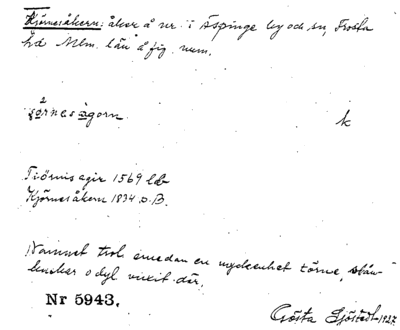 Kjörnesåkern: åker å nr. i Äspinge by och sn, Frosta
hd Mlm. län å fig num.
k
Tiörnis agir 1569 lb
Kjörnesåkern 1834 o.B.
Namnet trol. emedan en myckenhet törne, slån-
buskar o dyl vuxit där.
Nr 5943.
Gösta Sjöstedt 1927